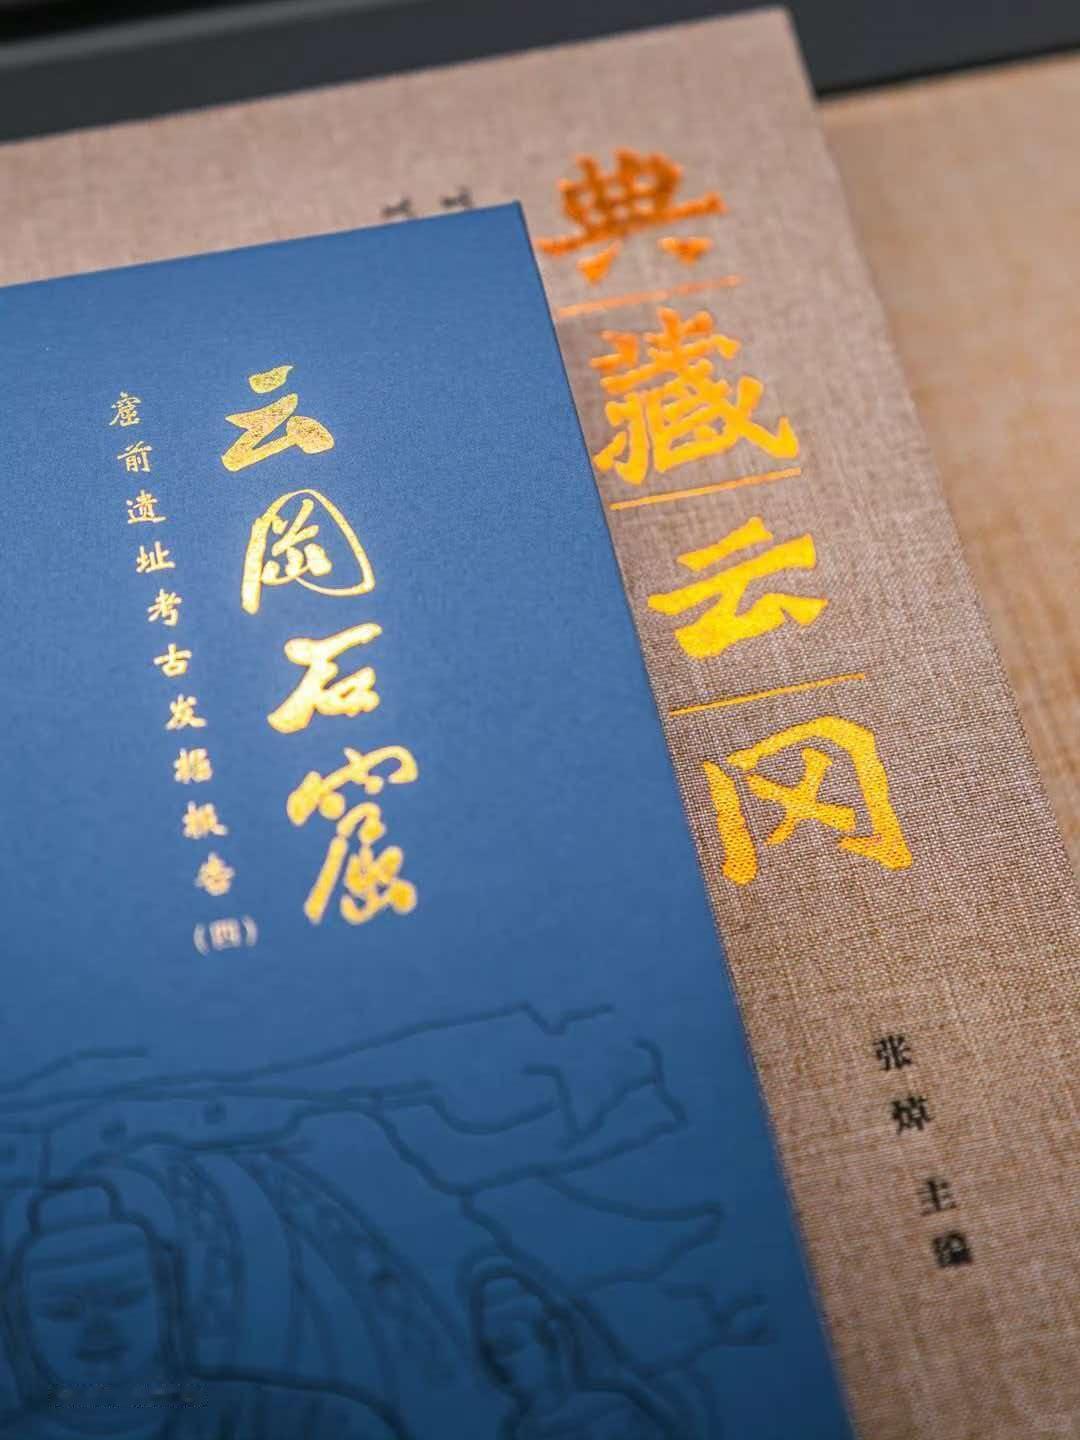 云冈石窟
窟前遗址考古发掘报告
(四)
典藏云冈
张焯 主编